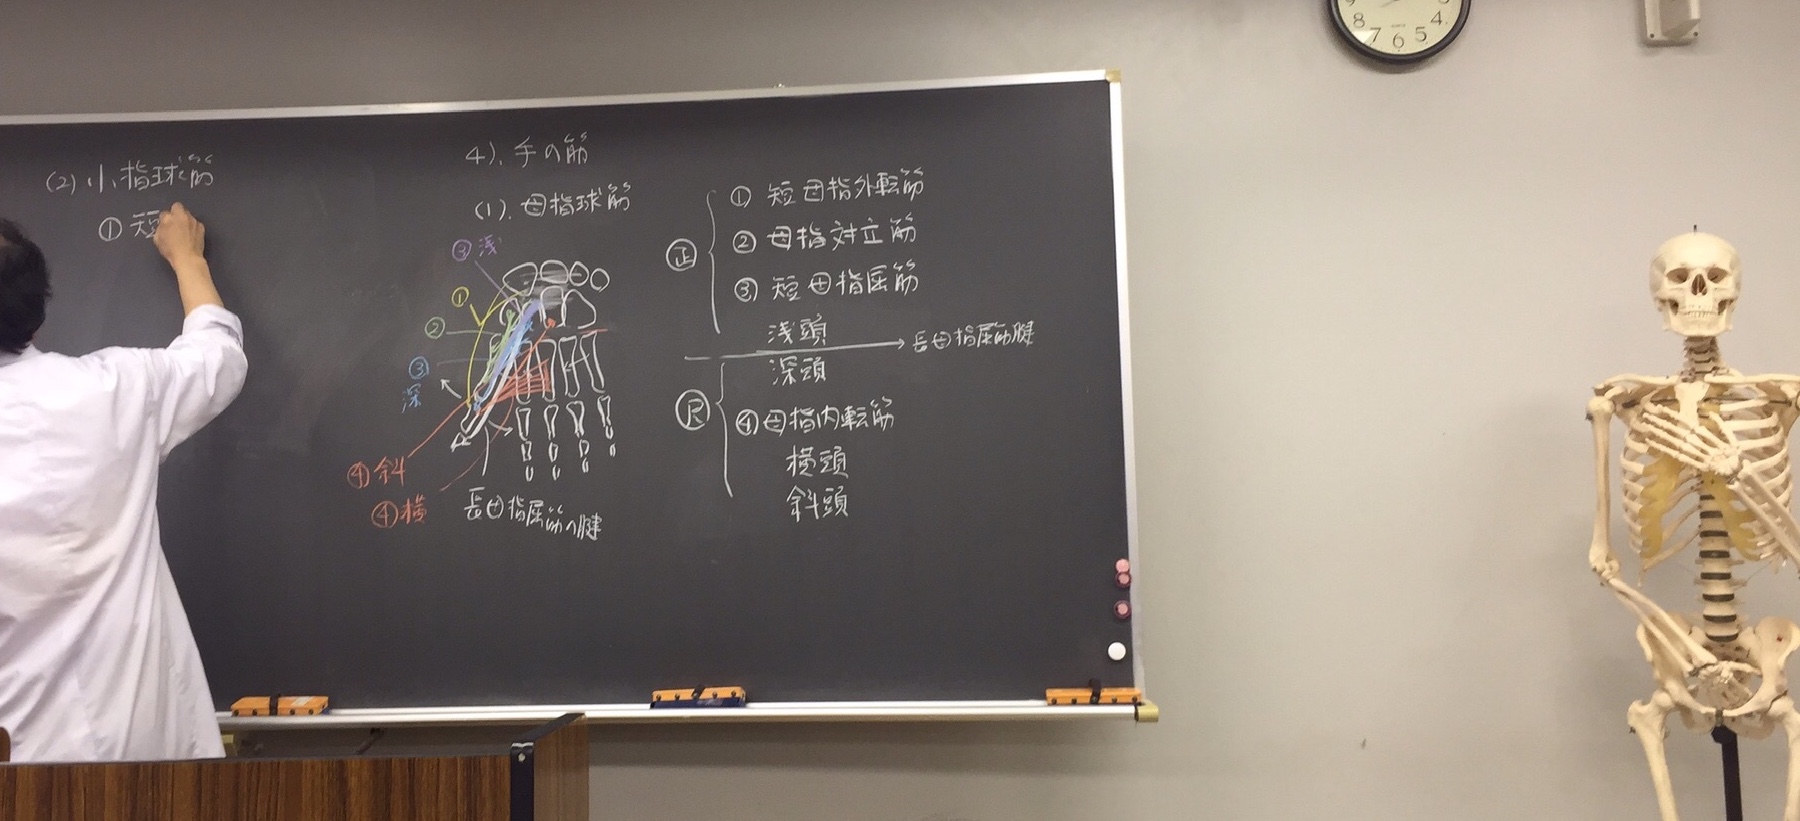 (2) 小指球筋
① 短
4). 手の筋
(1). 母指球筋
③ 浅
①
②
③
深
④ 斜
④ 横
長母指屈筋の腱
正
① 短母指外転筋
② 母指対立筋
③ 短母指屈筋
浅頭
→ 長母指屈筋腱
深頭
尺
④ 母指内転筋
横頭
斜頭
8 7 6 5 4